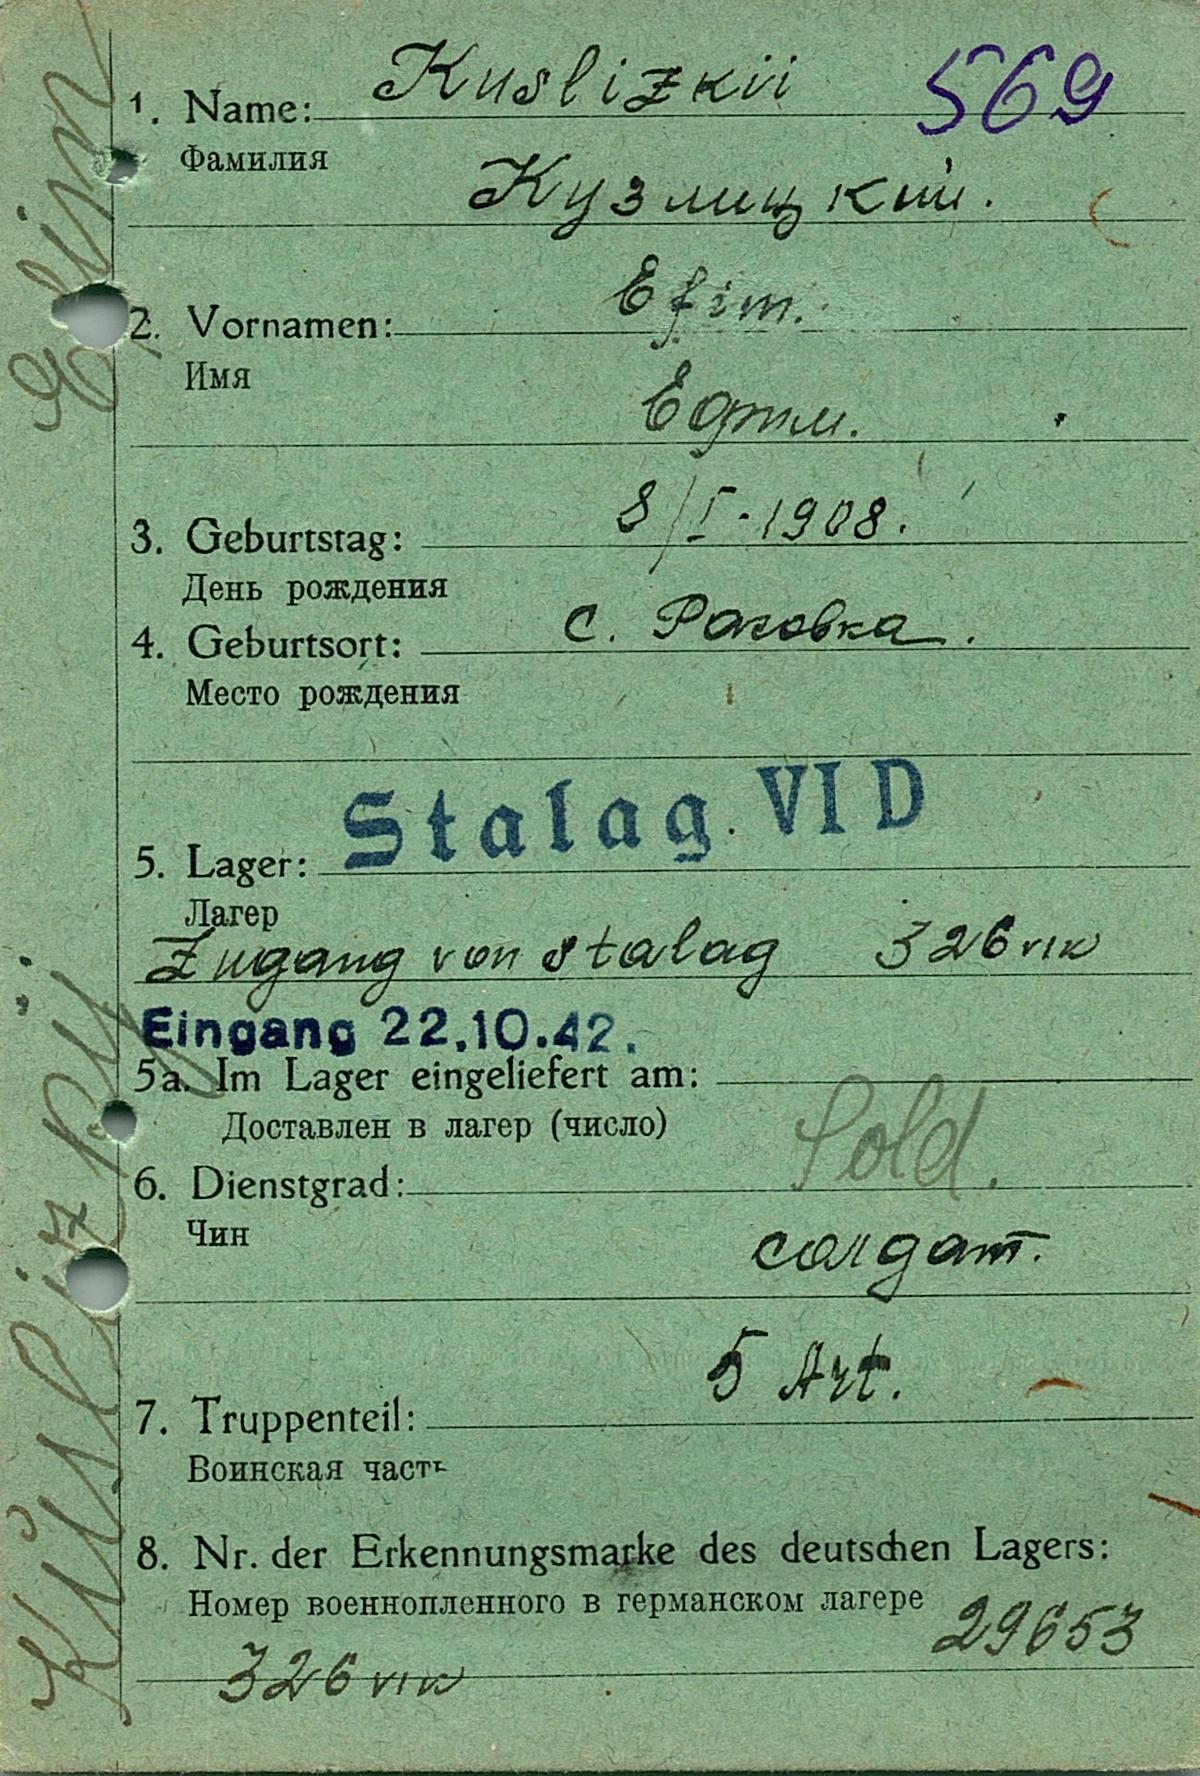 Kuslizkii 569
1. Name:
Фамилия
Кузлицкий.
Efim.
2. Vornamen:
Имя
Ефим.
8/I-1908.
3. Geburtstag:
День рождения
4. Geburtsort: с. Раковка.
Место рождения
Stalag VI D
5. Lager:
Лагер
Zugang von Stalag 326 VIK
Eingang 22.10.42.
5a. Im Lager eingeliefert am:
Доставлен в лагер (число)
Sold.
6. Dienstgrad:
Чин
солдат.
5 Art.
7. Truppenteil:
Воинская часть
8. Nr. der Erkennungsmarke des deutschen Lagers:
Номер военнопленного в германском лагере 29653
326 VIK
Kuslizkij Efim